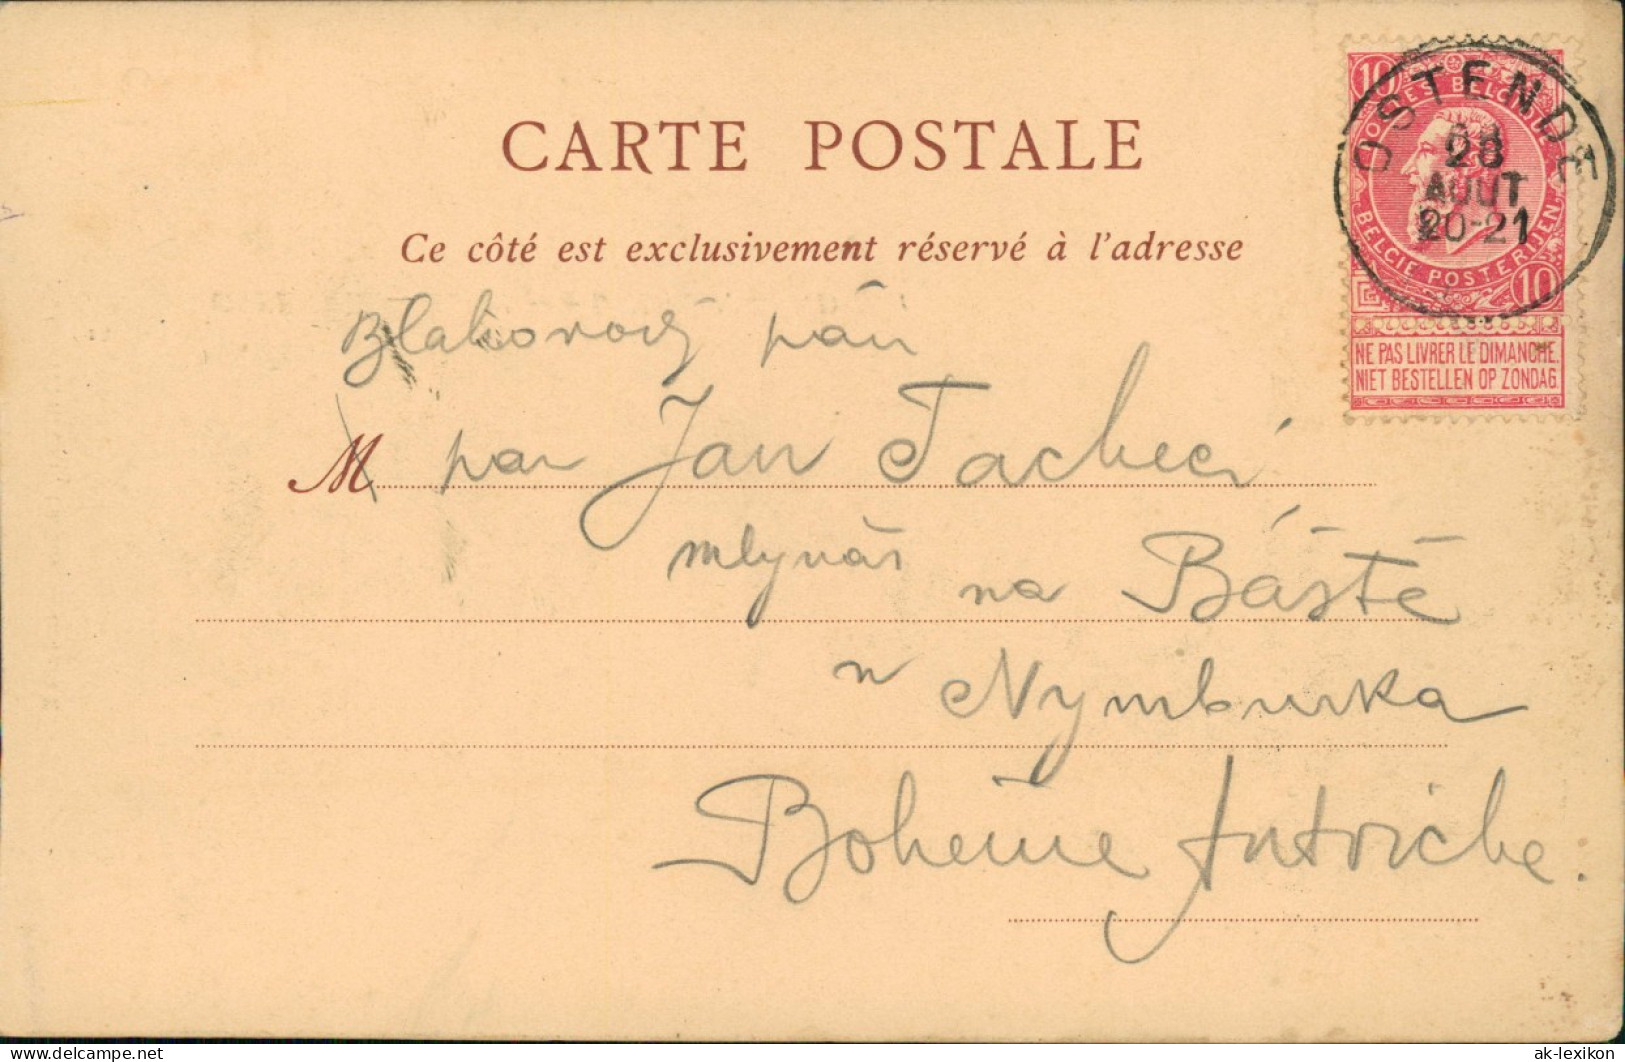 CARTE POSTALE
Ce côté est exclusivement réservé à l'adresse
OSTENDE
28
AOUT
20-21
10 10
POSTES BELGIQUE
BELGIE POSTERIJEN
10
NE PAS LIVRER LE DIMANCHE.
NIET BESTELLEN OP ZONDAG
pán
M pan Jan Tachecí
mlynář na Báště
u Nymburka
Bohême Autriche.
ak-lexikon